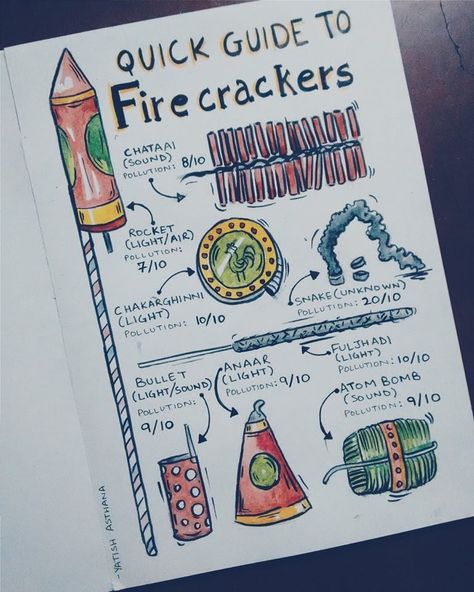 QUICK GUIDE TO
Firecrackers
CHATAAI
(SOUND)
POLLUTION: 8/10
ROCKET
(LIGHT/AIR)
POLLUTION:
7/10
CHAKARGHINNI
(LIGHT)
POLLUTION: 10/10
SNAKE (UNKNOWN)
POLLUTION: 20/10
FULJHADI
(LIGHT)
POLLUTION: 10/10
BULLET
(LIGHT/SOUND)
POLLUTION:
9/10
ANAAR
(LIGHT)
POLLUTION: 9/10
ATOM BOMB
(SOUND)
POLLUTION: 9/10
-YATISH ASTHANA